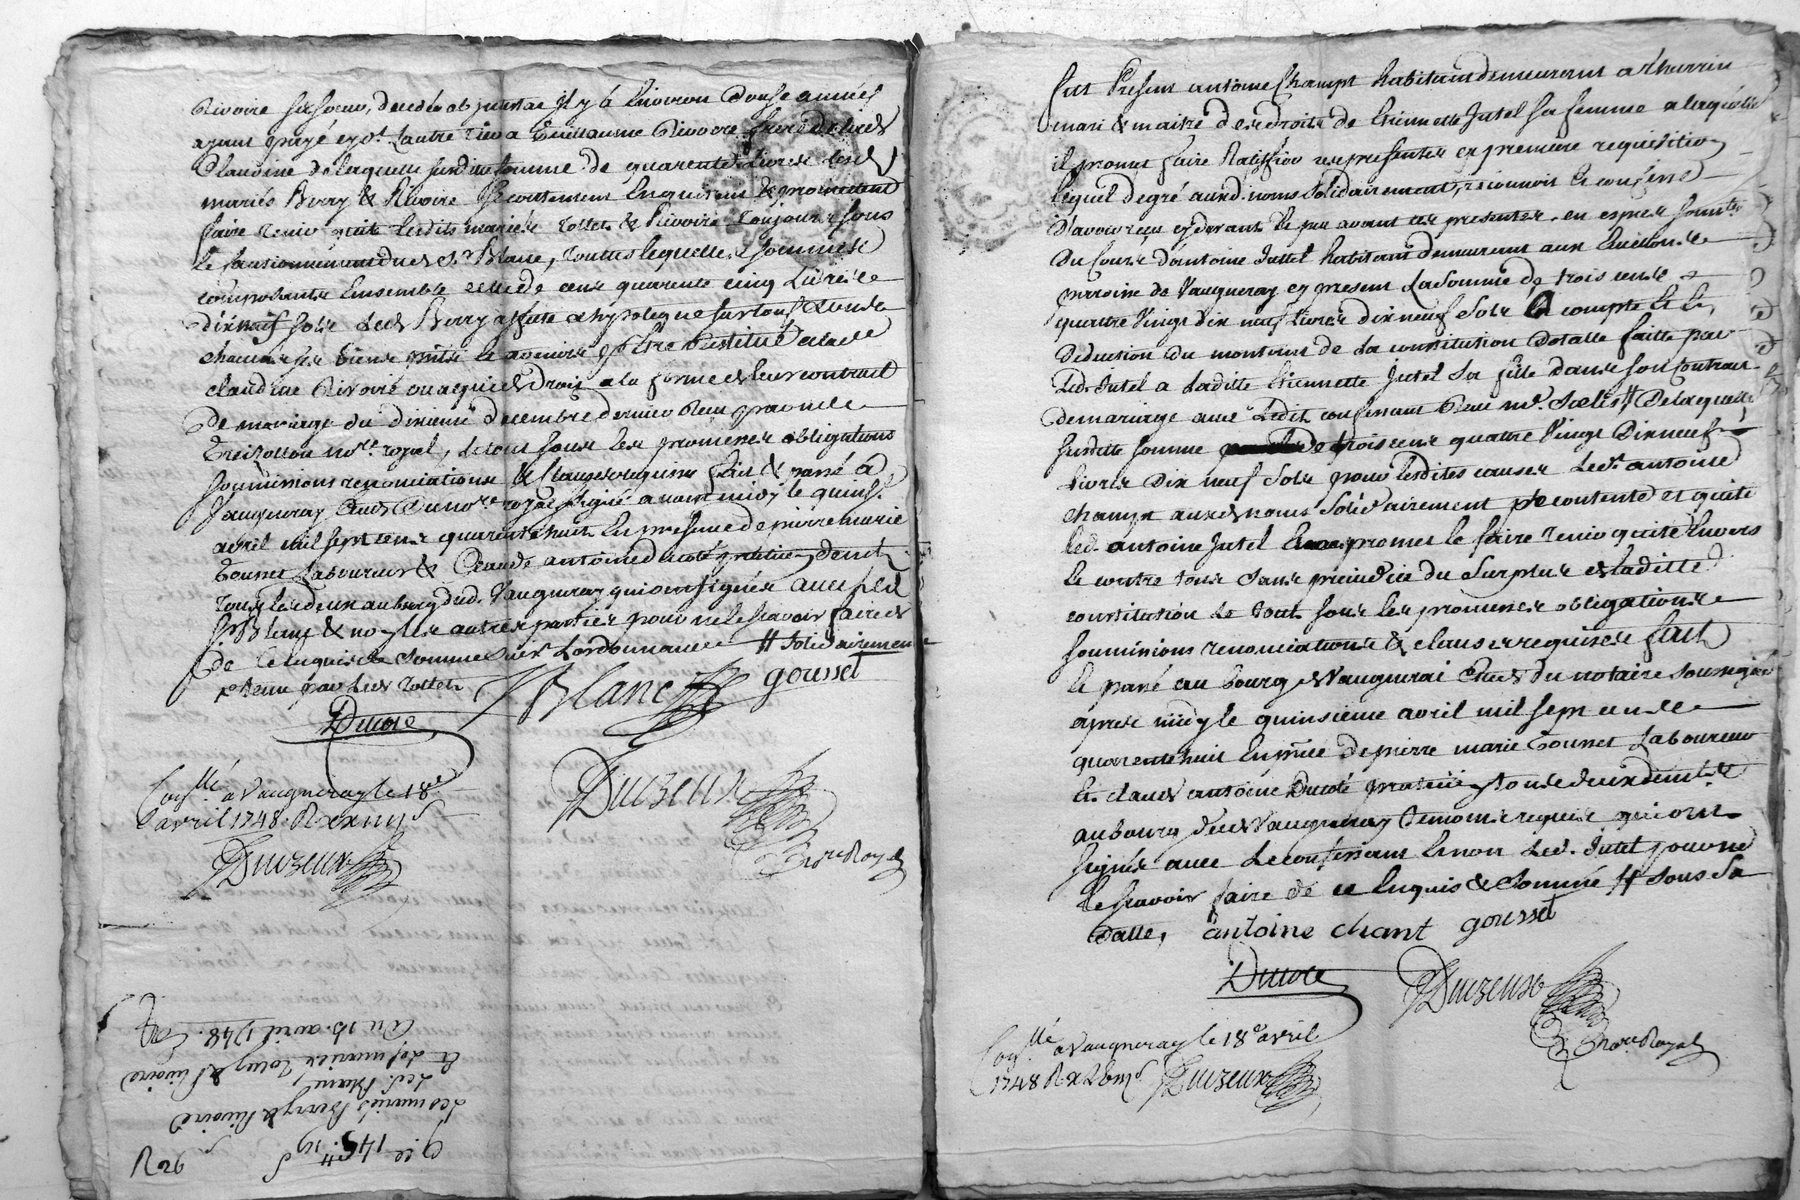 Rivoire sa soeur, decedée ab intestat il y a environ douse années
ayant payé eydt. l'autre tiers a Guillaume Rivoire frere de lad.
Claudine de laquelle susditte somme de quarente livres lesd.
mariés Berry & Rivoire se contentent en quittent & promettent
faire tenir quite lesdits mariés Tollet & Rivoire toujours sous
le cautionnement dud. Sr. Blanc, toutes lesquelles sommes
composants ensemble celle de cent quarente cinq livres
dixneuf sols led. Berry assure & hypoteque sur tous & un
chacun ses biens pour le tout être restitué a lad.
claudine Rivoire ou a qui de droit a la forme de leur contrat
de mariage du dixieme decembre dernier reçu par me
notre. royal, le tout sous les promesses obligations
soumissions renonciations & clauses requises fait & passé a
Vaugneray etude du nore. royal signé avant midy le quinse
avril mil sept cent quarente huit en presence de pierre marie
Gousset laboureur & Claude antoine Ducoté praticien demts.
tous les deux au bourg dud. Vaugneray qui ont signés avec led.
Sr. Blanc & non les autres parties pour ne le sçavoir faire
de ce enquis & sommés suivt. l'ordonnance # solidairement
& tenu par led. Tollet
Blanc gousset
Ducoté
Duzeux
nore. Royal
Conllé a Vaugneray le 18e
avril 1748. R xxiiii s
Duzeux
Qce 145# 19 s
Les mariés Berry & Rivoire
Led. Blanc
et les mariés Tollet & Rivoire
Du 15. avril 1748.
R 26
Fut present antoine Champt habitant demeurant a thurin
mari & maitre des droits de Etiennette Jutel sa femme a laquelle
il promet faire ratiffier ces presentes en premiere requisition
lequel de gré auxd. noms solidairement, reconnoit et confesse
d'avoir reçu cy devant et peu avant ces presentes en especes sonnts.
du cours d'antoine Juttel habitant demeurant aux
parroisse de Vaugneray cy present la somme de trois cents
quattre vingt dix neuf livres dix neuf sols a compte et en
deduction du montant de la constitution dotalle faitte par
led. Jutel a laditte Etiennette Jutel sa fille dans son contrat
de mariage avec ledit confessant reçu me. # de laquelle
susditte somme de trois cent quattre vingt dix neuf
livres dix neuf sols pour lesdites causes led. antoine
champt auxd. noms solidairement se contente et quite
led. antoine Jutel & promet le faire tenir quite envers
et contre tous sans prejudice du surplus de laditte
constitution le tout sous les promesses obligations
soumissions renonciations & clauses requises fait
et passé au bourg de Vaugnerai etude du notaire soussigné
apres midy le quinsieme avril mil sept cent
quarente huit en présce de pierre marie Gousset laboureur
et claude antoine Ducoté praticien tous deux demts.
au bourg dud. Vaugneray temoins requis qui ont
signés avec le confessant & non led. Jutel pour ne
le sçavoir faire de ce enquis & sommé # sous sa
datte,
antoine chant gousset
Ducoté Duzeux
nore. Royal
Conllé a Vaugneray le 18e avril
1748 R
Duzeux